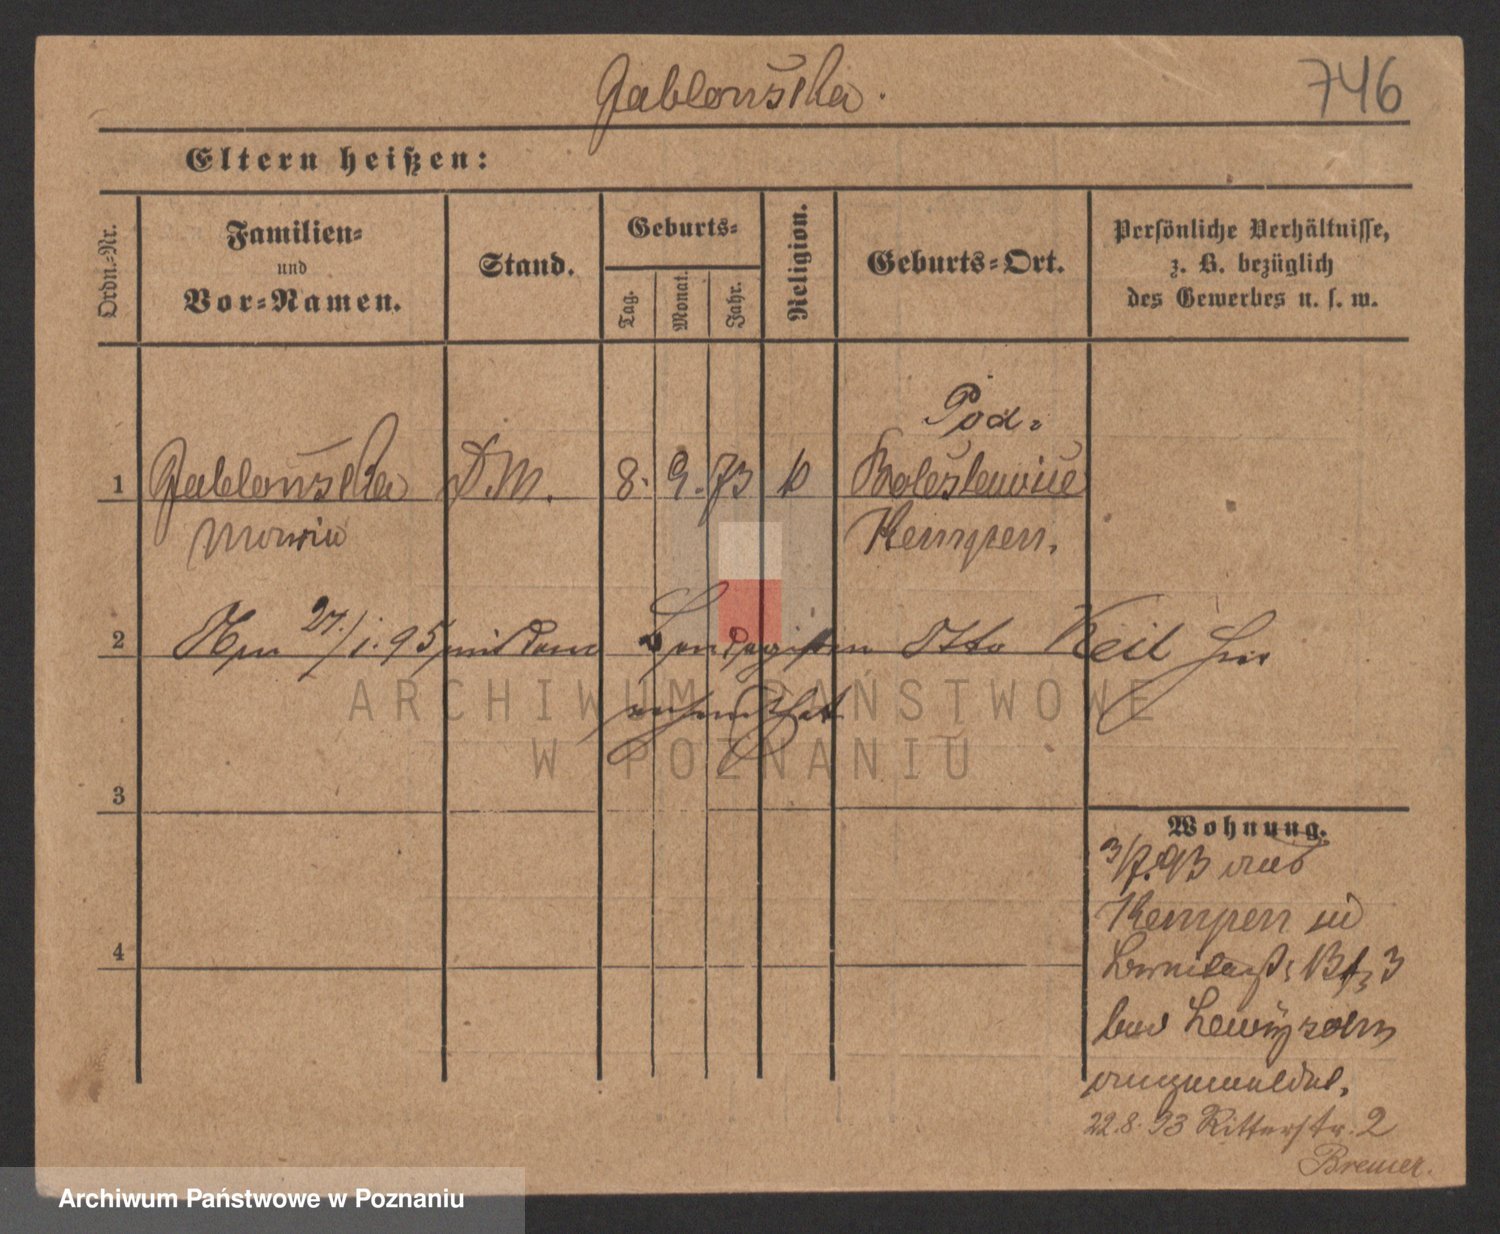 Jabłońska.
746
Eltern heißen:
Ordn.-Nr.
Familien-
und
Vor-Namen.
Stand.
Geburts-
Tag.
Monat.
Jahr.
Religion.
Geburts-Ort.
Persönliche Verhältnisse,
z. B. bezüglich
des Gewerbes u. s. w.
Pod-
1 Jabłońska D.M. 8. 9. 73 k Boleslawice
Maria Kempen.
2 Am 27./1. 95 mit dem Otto Keil hier
3
4
ARCHIWUM PAŃSTWOWE
W POZNANIU
Wohnung.
3/7. 93 aus
Kempen in
3
bei Lewysohn
angemeldet.
22.8.93 Ritterstr. 2
Bremer.
Archiwum Państwowe w Poznaniu